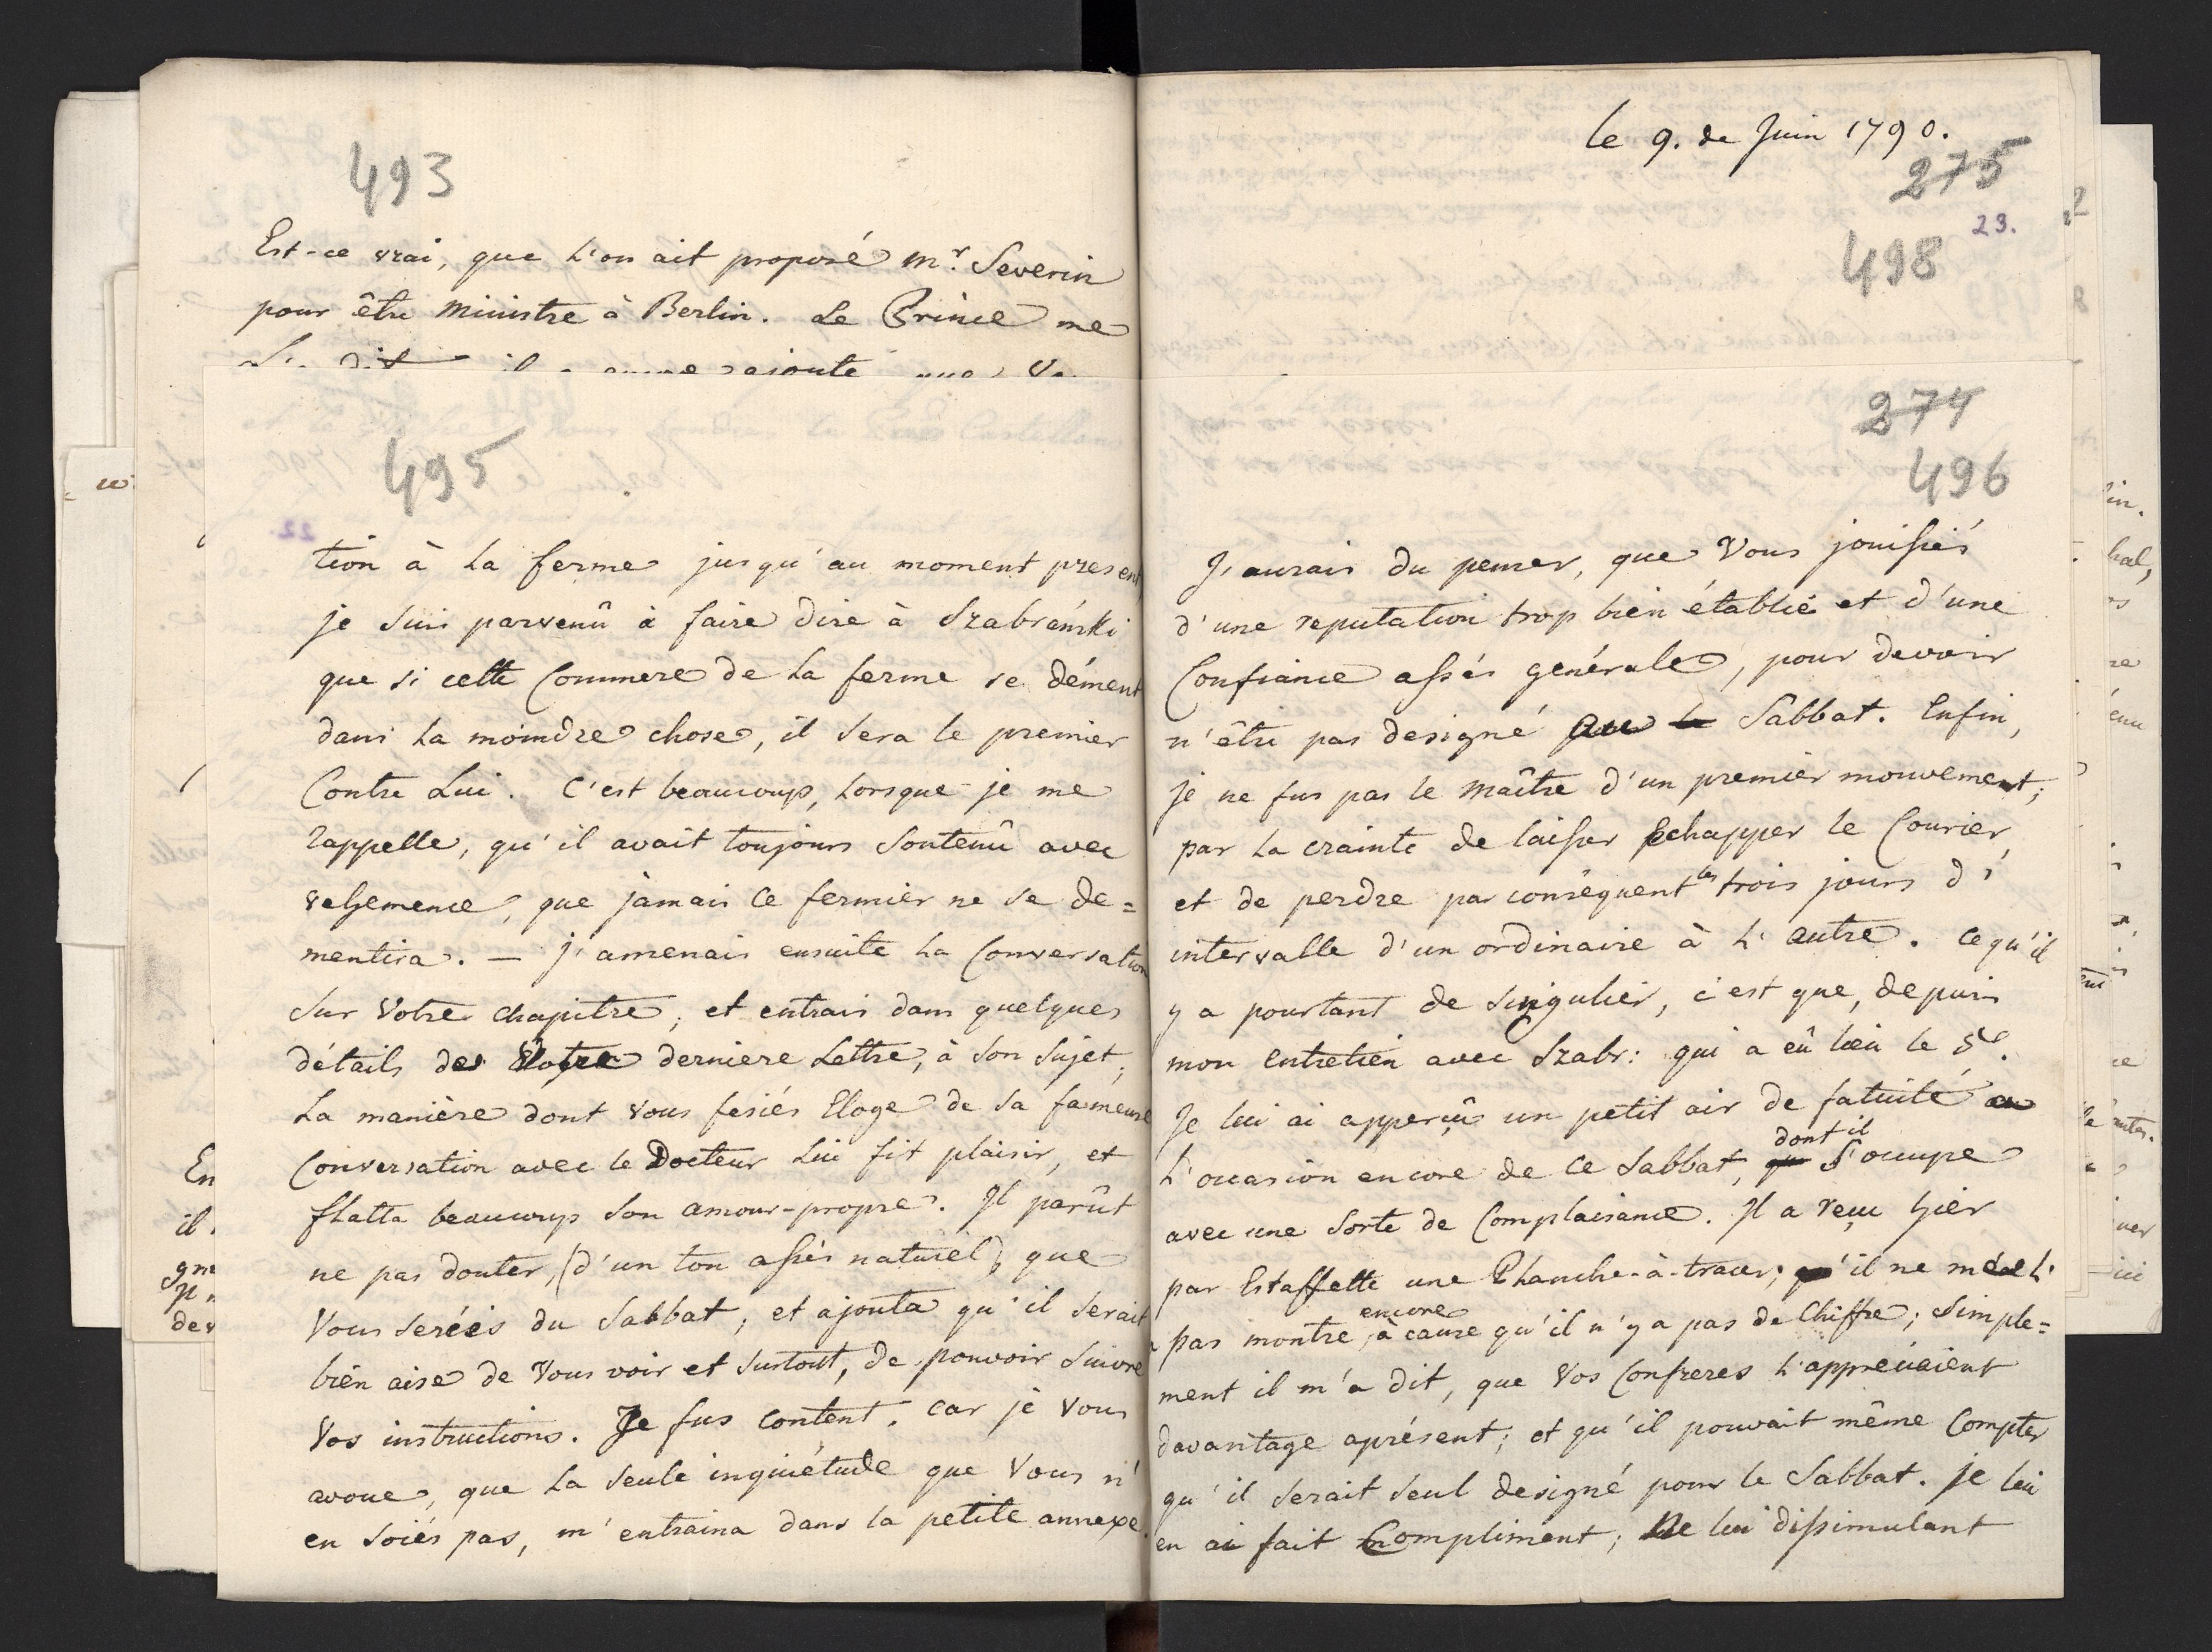 493
Est-ce vrai, que l'on ait proposé Mr. Severin
pour être Ministre à Berlin. Le Prince me
le 9. de Juin 1790.
275
23.
498
495
22.
tion à la ferme jusqu'au moment present
je suis parvenû à faire dire à Szabrański
que si cette Commere de la ferme se dément
dans la moindre chose, il sera le premier
Contre Lui. C'est beaucoup, lorsque je me
rappelle, qu'il avait toujours soutenû avec
vehemence, que jamais ce fermier ne se de=
mentira. — j'amenais ensuite la Conversation
sur Votre chapitre, et entrais dans quelques
détails de Votre derniere Lettre, à son sujet;
La manière dont vous fesiés Eloge de sa fameuse
Conversation avec le Docteur Lui fit plaisir, et
flatta beaucoup son amour-propre. Il parût
ne pas douter, (d'un ton assés naturel), que
Vous seréés du Sabbat, et ajouta qu'il serait
bien aise de Vous voir et surtout, de pouvoir suivre
Vos instructions. Je fus content. car je vous
avoue, que la seule inquiétude que Vous n'
en soiés pas, m'entraina dans la petite annexe.
274
496
J'aurais du penser, que Vous jouissiés
d'une reputation trop bien établie et d'une
Confiance assés genérale, pour devoir
n'être pas designé au Sabbat. Enfin,
je ne fus pas le Maître d'un premier mouvement,
par la crainte de laisser echapper le Courier,
et de perdre par conséquent les trois jours d'
intervalle d'un ordinaire à l'autre. Ce qu'il
y a pourtant de singulier, c'est que, depuis
mon entretien avec Szabr: qui a eû lieu le 5e.
Je lui ai apperçû un petit air de fatuité a
l'occasion encore de ce Sabbat, dont il s'occupe
avec une sorte de Complaisance. Il a reçu hier
par Estaffette une Planche-à-tracer; qu'il ne m'a
pas montre encore, à cause qu'il n'y a pas de Chiffre; Simple=
ment il m'a dit, que Vos Confreres l'appreciaient
davantage aprésent; et qu'il pouvait même Compter
qu'il serait seul designé pour le Sabbat. Je lui
en ai fait Compliment; Ne lui dissimulant